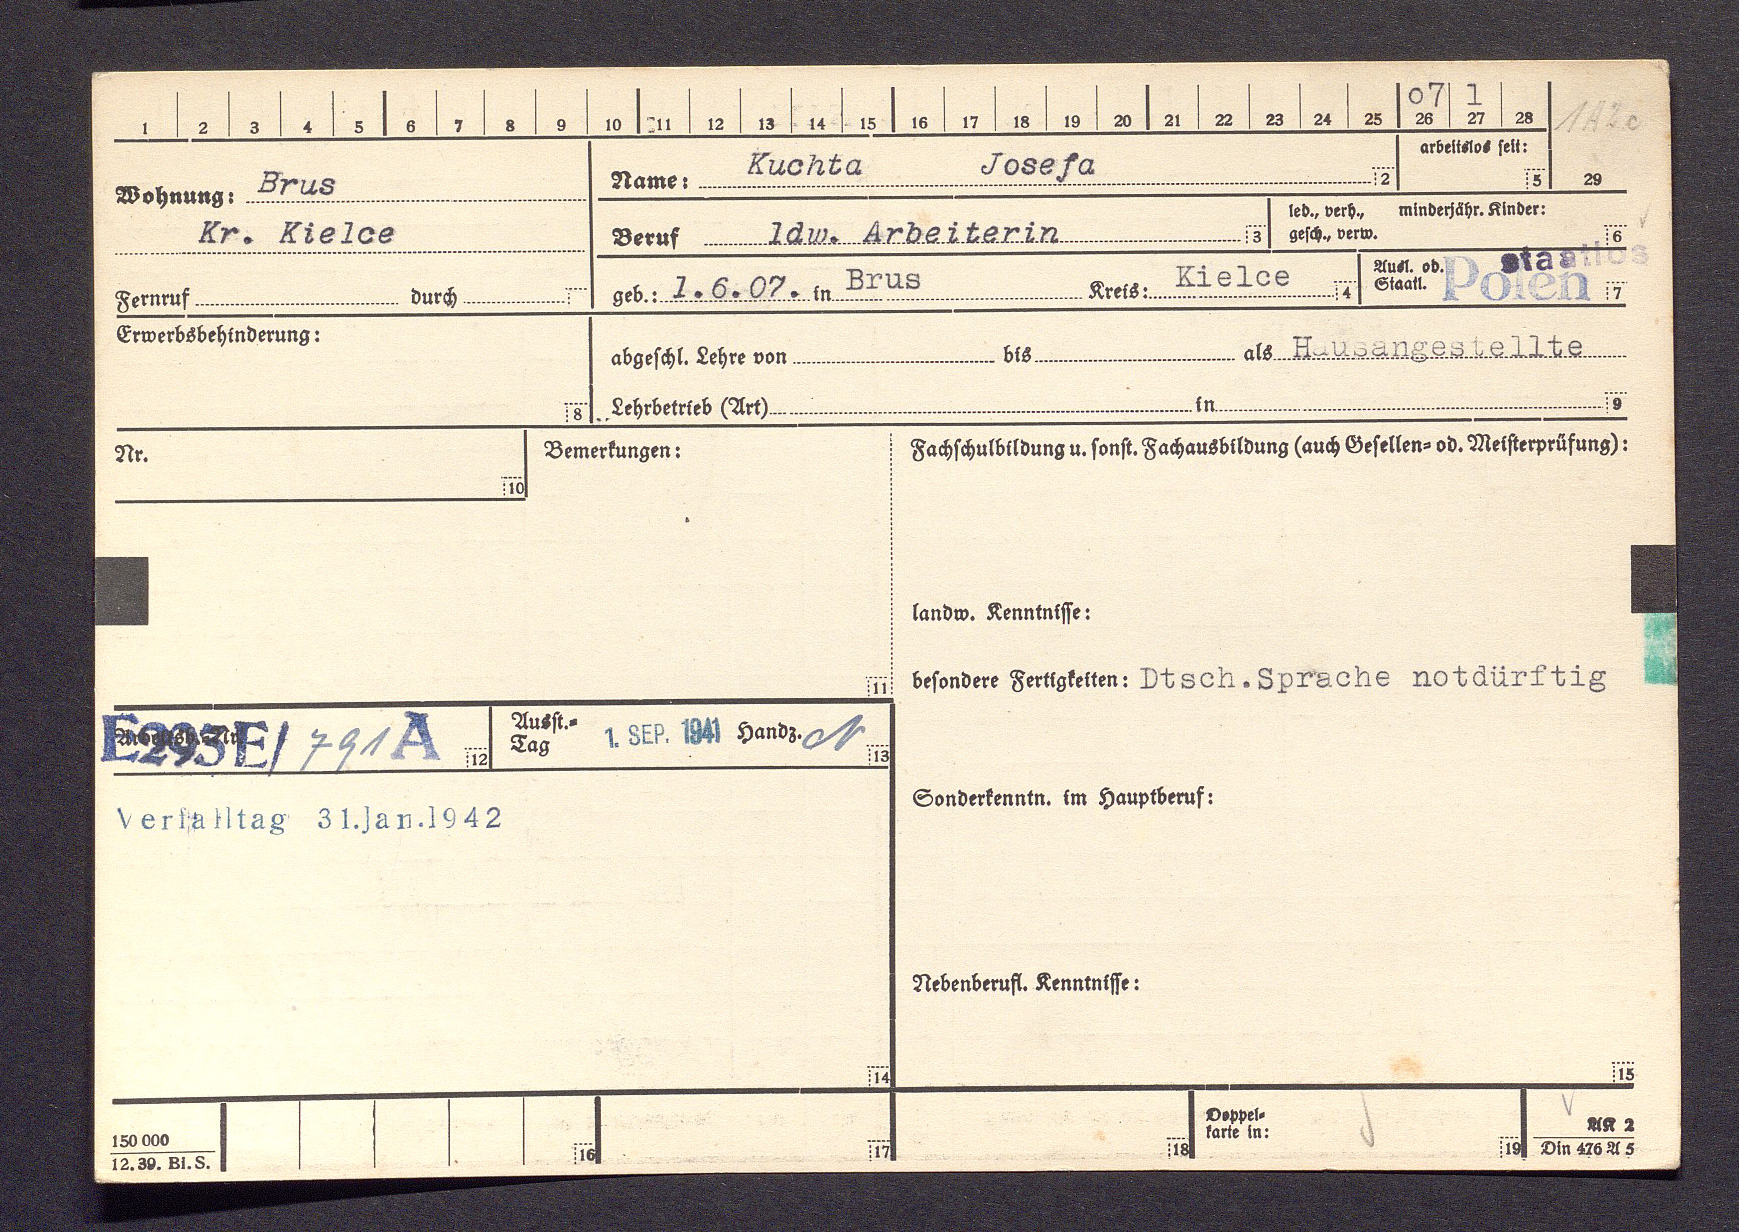 07 1
1 2 3 4 5 6 7 8 9 10 11 12 13 14 15 16 17 18 19 20 21 22 23 24 25 26 27 28
Wohnung: Brus
Kr. Kielce
Fernruf durch
Name: Kuchta Josefa 2
arbeitslos seit: 5
29
Beruf ldw. Arbeiterin 3
led., verh., minderjähr. Kinder:
gesch., verw. 6
geb.: 1.6.07. in Brus Kreis: Kielce 4
Ausl. od. staatlos
Staatl. Polen 7
Erwerbsbehinderung:
8
abgeschl. Lehre von bis als Hausangestellte
Lehrbetrieb (Art) in 9
Nr.
10
Bemerkungen:
11
Fachschulbildung u. sonst. Fachausbildung (auch Gesellen- od. Meisterprüfung):
landw. Kenntnisse:
besondere Fertigkeiten: Dtsch.Sprache notdürftig
Arbeitsb.-Nr. E293E/ 791 A 12
Ausst.-
Tag 1. SEP. 1941 Handz. 13
Verfalltag 31.Jan.1942
14
Sonderkenntn. im Hauptberuf:
Nebenberufl. Kenntnisse:
15
150 000
12. 39. Bl. S.
16
17
18
Doppel-
karte in: 19
AK 2
Din 476 A 5